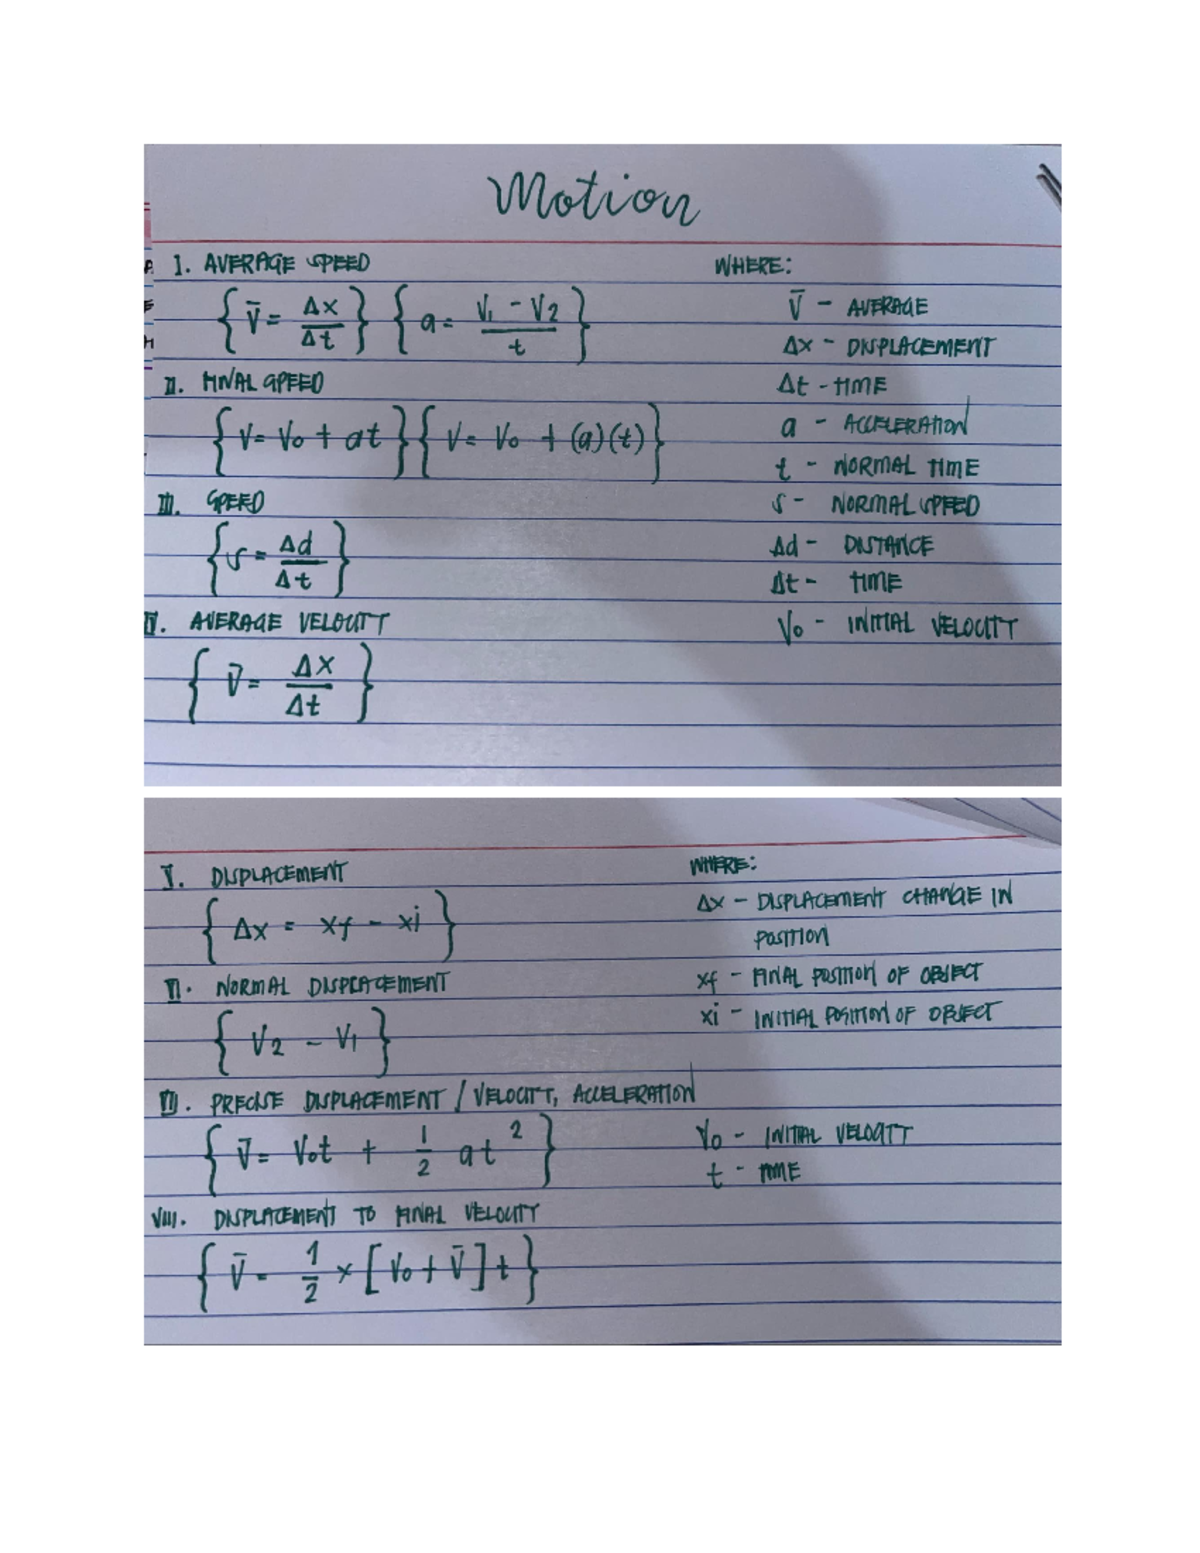 Motion
I. AVERAGE SPEED
{ V̄ = Δx / Δt } { a = V₁ - V₂ / t }
II. FINAL SPEED
{ V = V₀ + at } { V = V₀ + (a)(t) }
III. SPEED
{ s = Δd / Δt }
IV. AVERAGE VELOCITY
{ V̄ = Δx / Δt }
WHERE:
V̄ - AVERAGE
Δx - DISPLACEMENT
Δt - TIME
a - ACCELERATION
t - NORMAL TIME
s - NORMAL SPEED
Δd - DISTANCE
Δt - TIME
V₀ - INITIAL VELOCITY
V. DISPLACEMENT
{ Δx = xf - xi }
VI. NORMAL DISPLACEMENT
{ V₂ - V₁ }
VII. PRECISE DISPLACEMENT / VELOCITY, ACCELERATION
{ V̄ = V₀t + 1/2 at² }
VIII. DISPLACEMENT TO FINAL VELOCITY
{ V̄ = 1/2 × [V₀ + V̄] t }
WHERE:
Δx - DISPLACEMENT CHANGE IN
POSITION
xf - FINAL POSITION OF OBJECT
xi - INITIAL POSITION OF OBJECT
V₀ - INITIAL VELOCITY
t - TIME